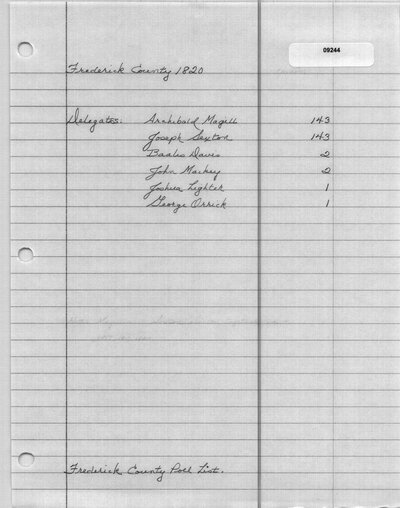 09244
Frederick County 1820
Delegates: Archibald Magill 143
Joseph Sexton 143
Baalis Davis 2
John Mackey 2
Joshua Lighter 1
George Orrick 1
Frederick County Poll List.